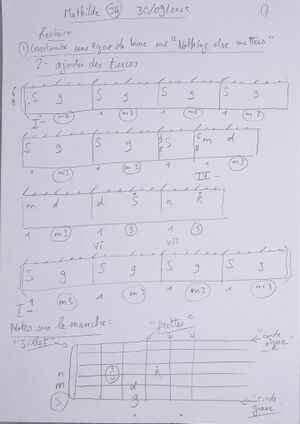 Mathilde G4 30/09/2025 ①
Revision
① Construire une ligne de basse sur "Nothing else matters"
2- ajouter des tierces
6 8 S g S g S g S g
I- m3 1 m3 1 m3 1 m3
S g S g S 6 8 m d
1 m3 1 m3 1 IV- 1 m3
m d d S n R
1 m3 1 3 1 3
vi vii
S g S g S g S g
I- 1 m3 1 m3 1 m3 1 m3
Notes sur le manche :
"Sillet" "frettes" "corde aigue"
n R
m d
S g corde grave